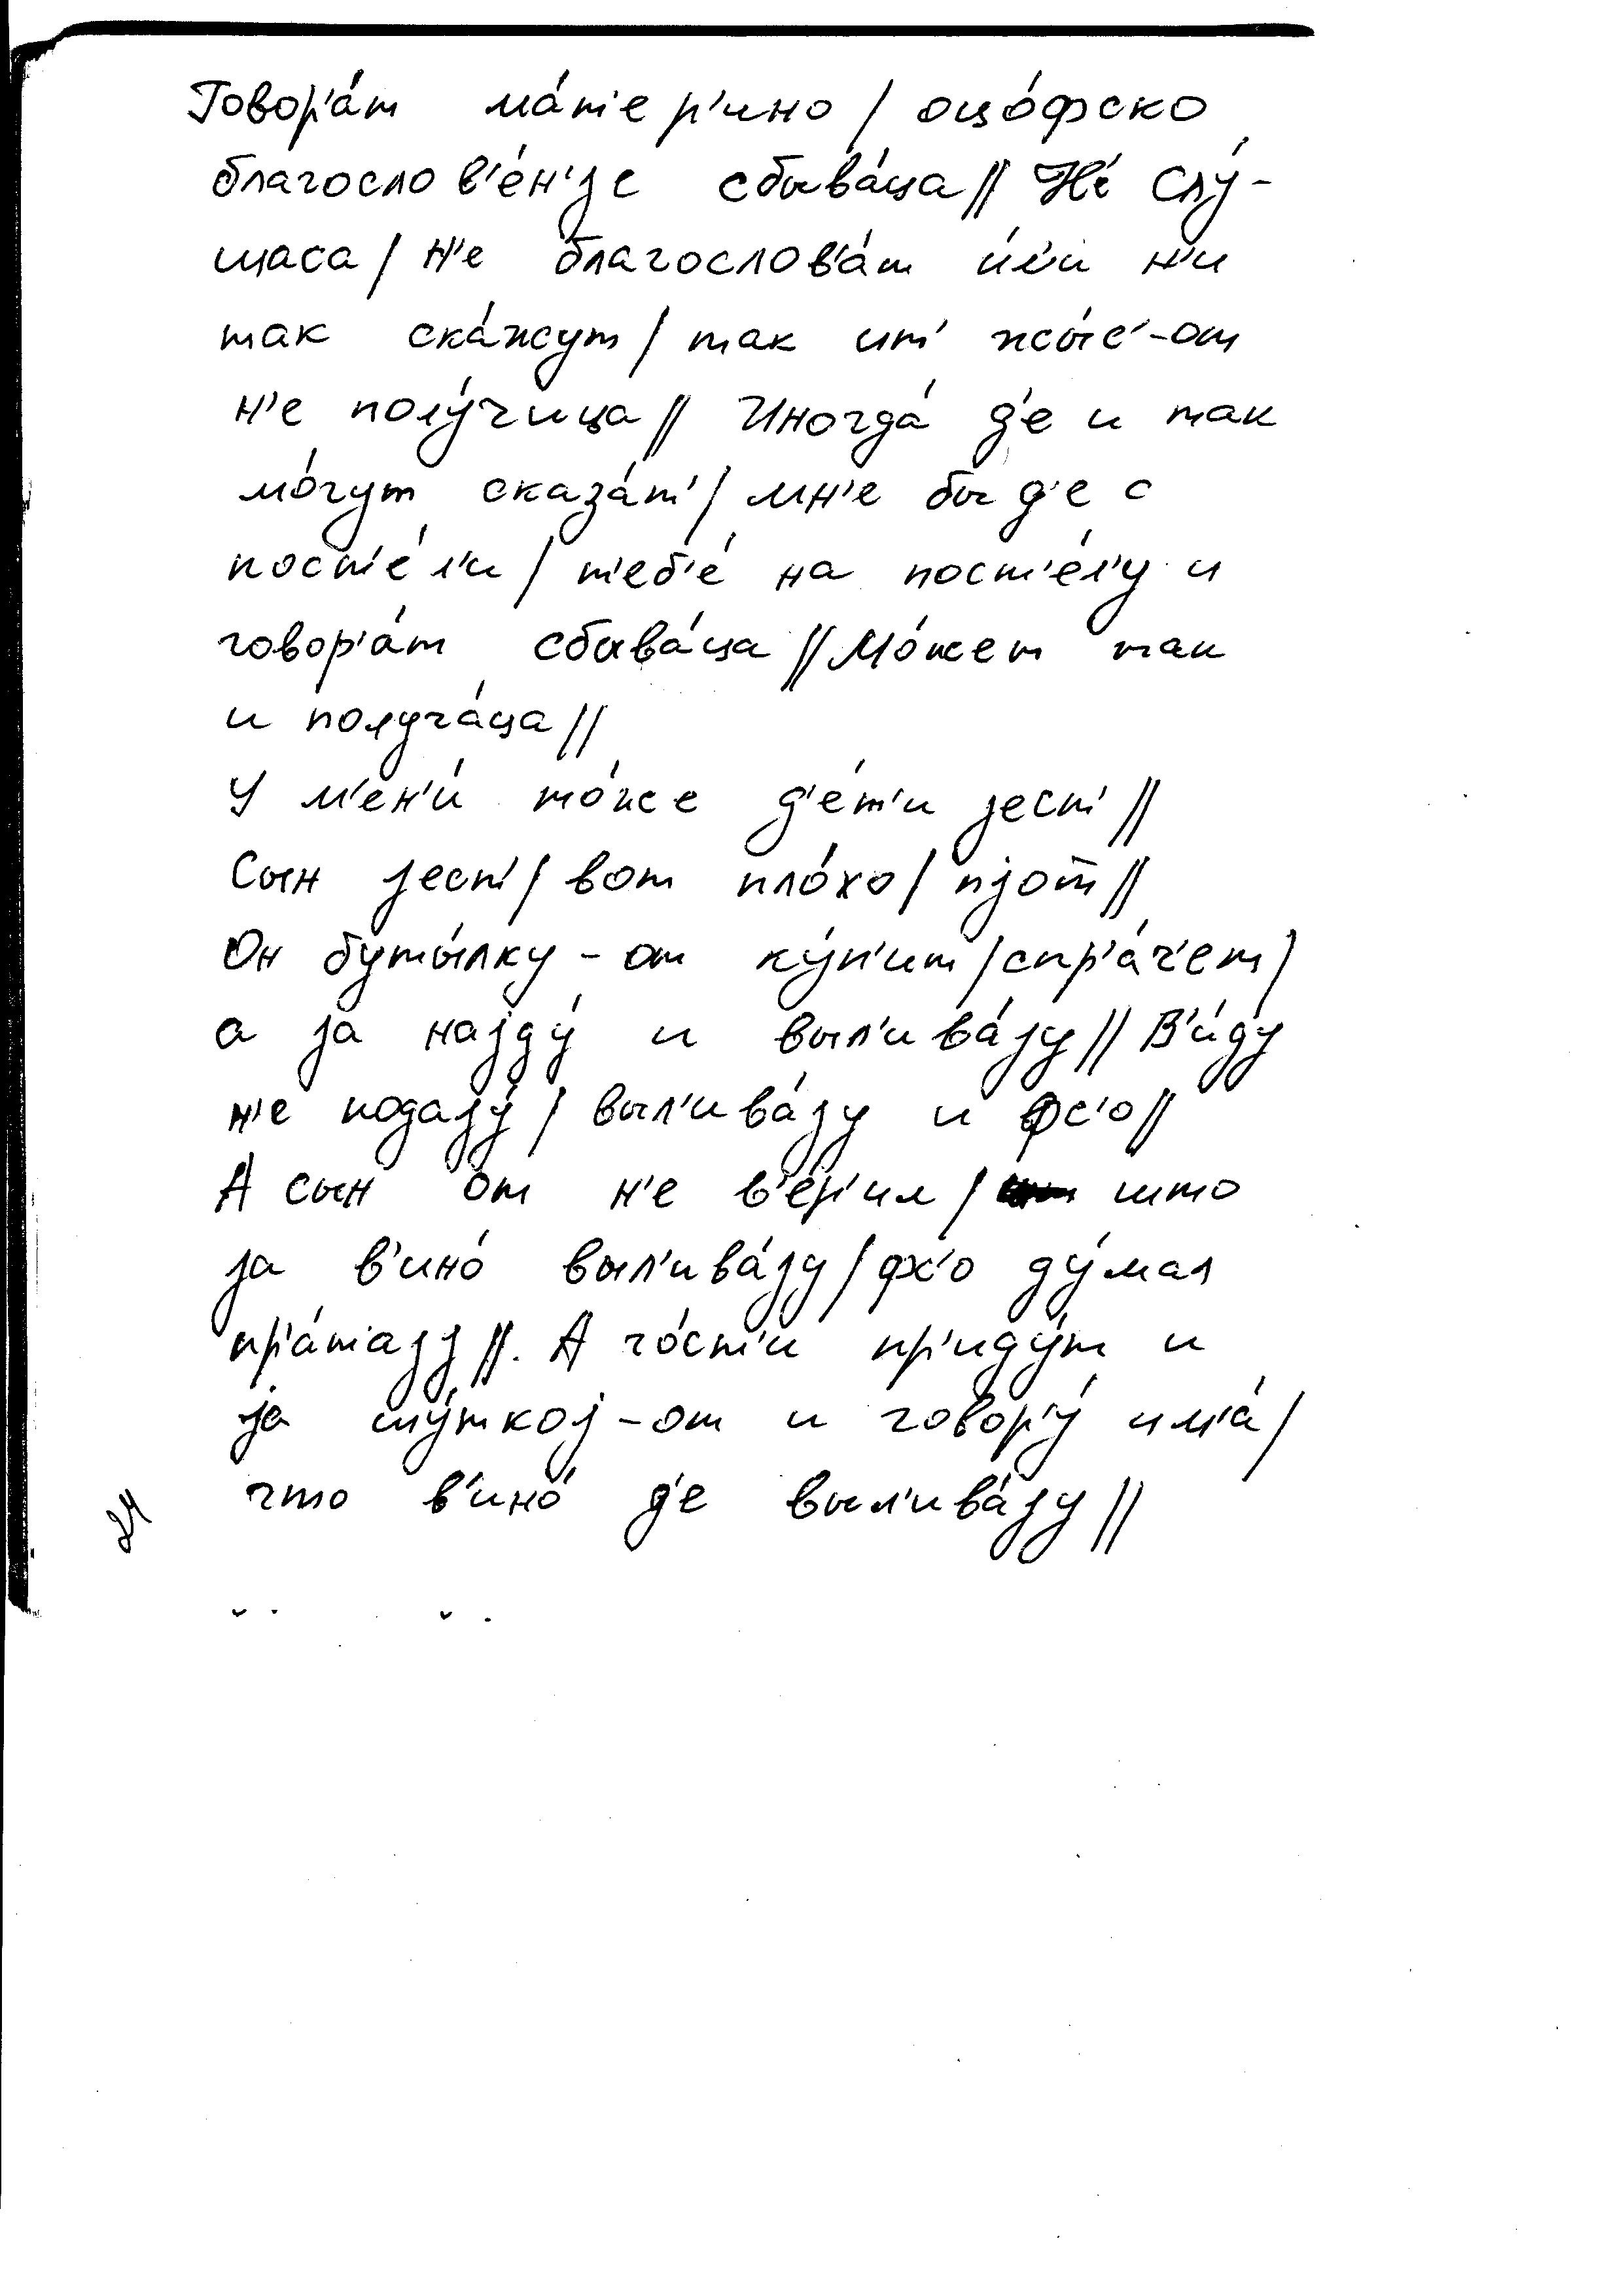 Говор'а́т ма́т'ер'ино / оцо́фско
благослов'е́н'jе сбыва́ца // Не́ слу́-
шаса / н'е благослов'а́т и́л'и н'и
так ска́жут / так
н'е полу́чица // Иногда́ д'е и так
мо́гут сказа́т' / мн'е бы д'е с
пост'е́л'и / т'еб'е́ на пост'е́л'у и
говор'а́т сбыва́ца // Мо́жет так
и получа́ца //
У м'ен'и́ то́же д'е́т'и jест' //
Сын jест' / вот пло́хо / пjот //
Он буты́лку-от ку́п'ит / спр'а́ч'ет /
а jа наjду́ и выл'ива́jу // В'и́ду
н'е подаjу́ / выл'ива́jу и фс'о //
А сын от н'е в'е́р'ил / што
jа в'ино́ выл'ива́jу / фс'о ду́мал
пр'а́таjу //. А го́ст'и пр'иду́т и
jа шу́ткоj-от и говор'у́ им'а́ /
что в'ино́ д'е выл'ива́jу //
24